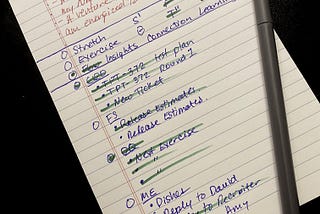 my
A venture
am energized
Stretch 5'
Exercise
Insights Connection Learning
TPT-372 test plan
TPT-372 Round 1
New Ticket
ES
Release Estimates
Release Estimated.
Next Exercise
"
"
ME
Dishes
Reply to David
to Recruiter
Amy